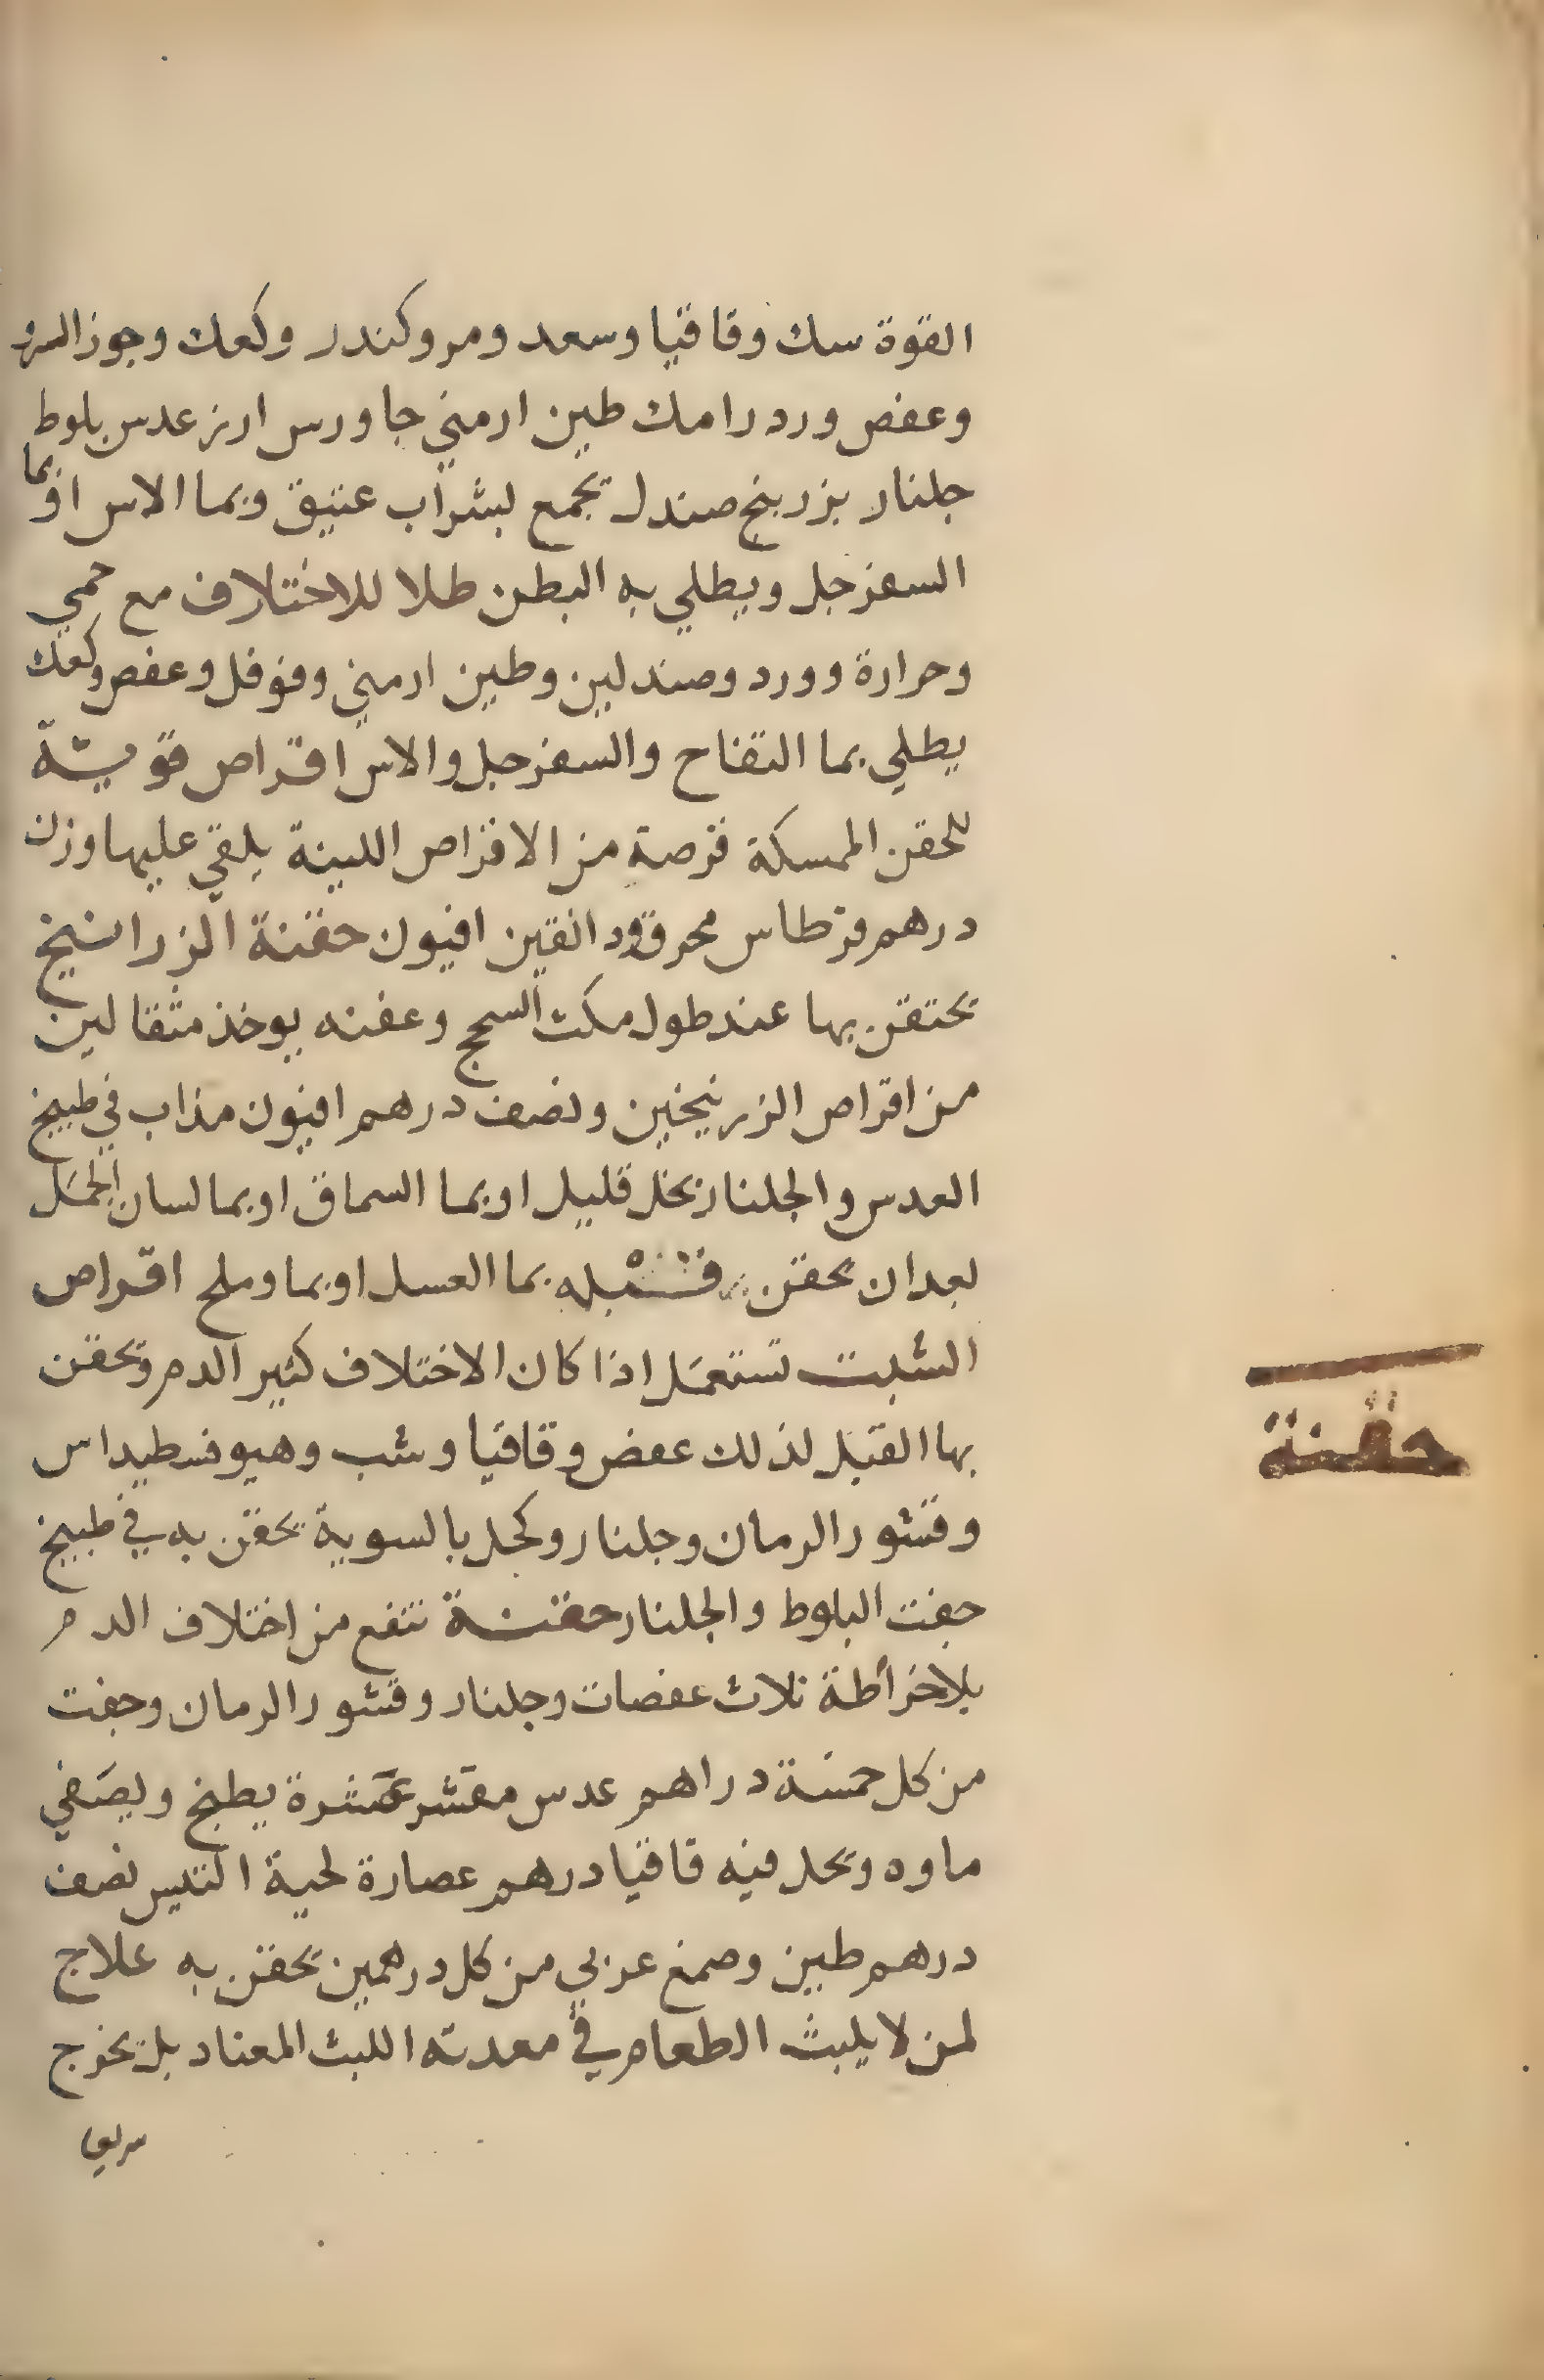 القوة سك وقاقيا وسعد ومر وكندر وكعك وجوز السرو
وعفص ورد رامك طين ارمني جاورس ارز عدس بلوط
جلنار بزر بنج صندل تجمع بشراب عتيق وبما الاس او بما
السفرجل ويطلي به البطن طلا للاختلاف مع حمي
وحرارة وورد وصندلين وطين ارمني وفوفل وعفص وكعك
يطلي بما التفاح والسفرجل والاس اقراص قوية
للحقن الممسكة قرصة من الاقراص اللينة يلقي عليها وزن
درهم قرطاس محرق ودانقين افيون حقنة الزرانيخ
يحتقن بها عند طول مكث السحج وعفنه يوخذ مثقالين
من اقراص الزرنيخين ونصف درهم افيون مذاب في طبيخ
العدس والجلنار بخل قليل او بما السماق او بما لسان الحمل
بعد ان يحقن قبله بما العسل او بما وملح اقراص
الشبث تستعمل اذا كان الاختلاف كثير الدم وتحقن
بها القبل لذلك عفص وقاقيا وشب وهيوفسطيداس
وقشور الرمان وجلنار وكحل بالسوية يحقن به في طبيخ
جفت البلوط والجلنار حقنة تنفع من اختلاف الدم
بلا خراطة ثلاث عفصات وجلنار وقشور الرمان وجفت
من كل خمسة دراهم عدس مقشر عشرة يطبخ ويصفي
ماوه ويحل فيه قاقيا درهم عصارة لحية التيس نصف
درهم طين وصمغ عربي من كل درهمين يحقن به علاج
لمن لا يلبث الطعام في معدته اللبث المعتاد بل يخرج
سريعا
حقنة